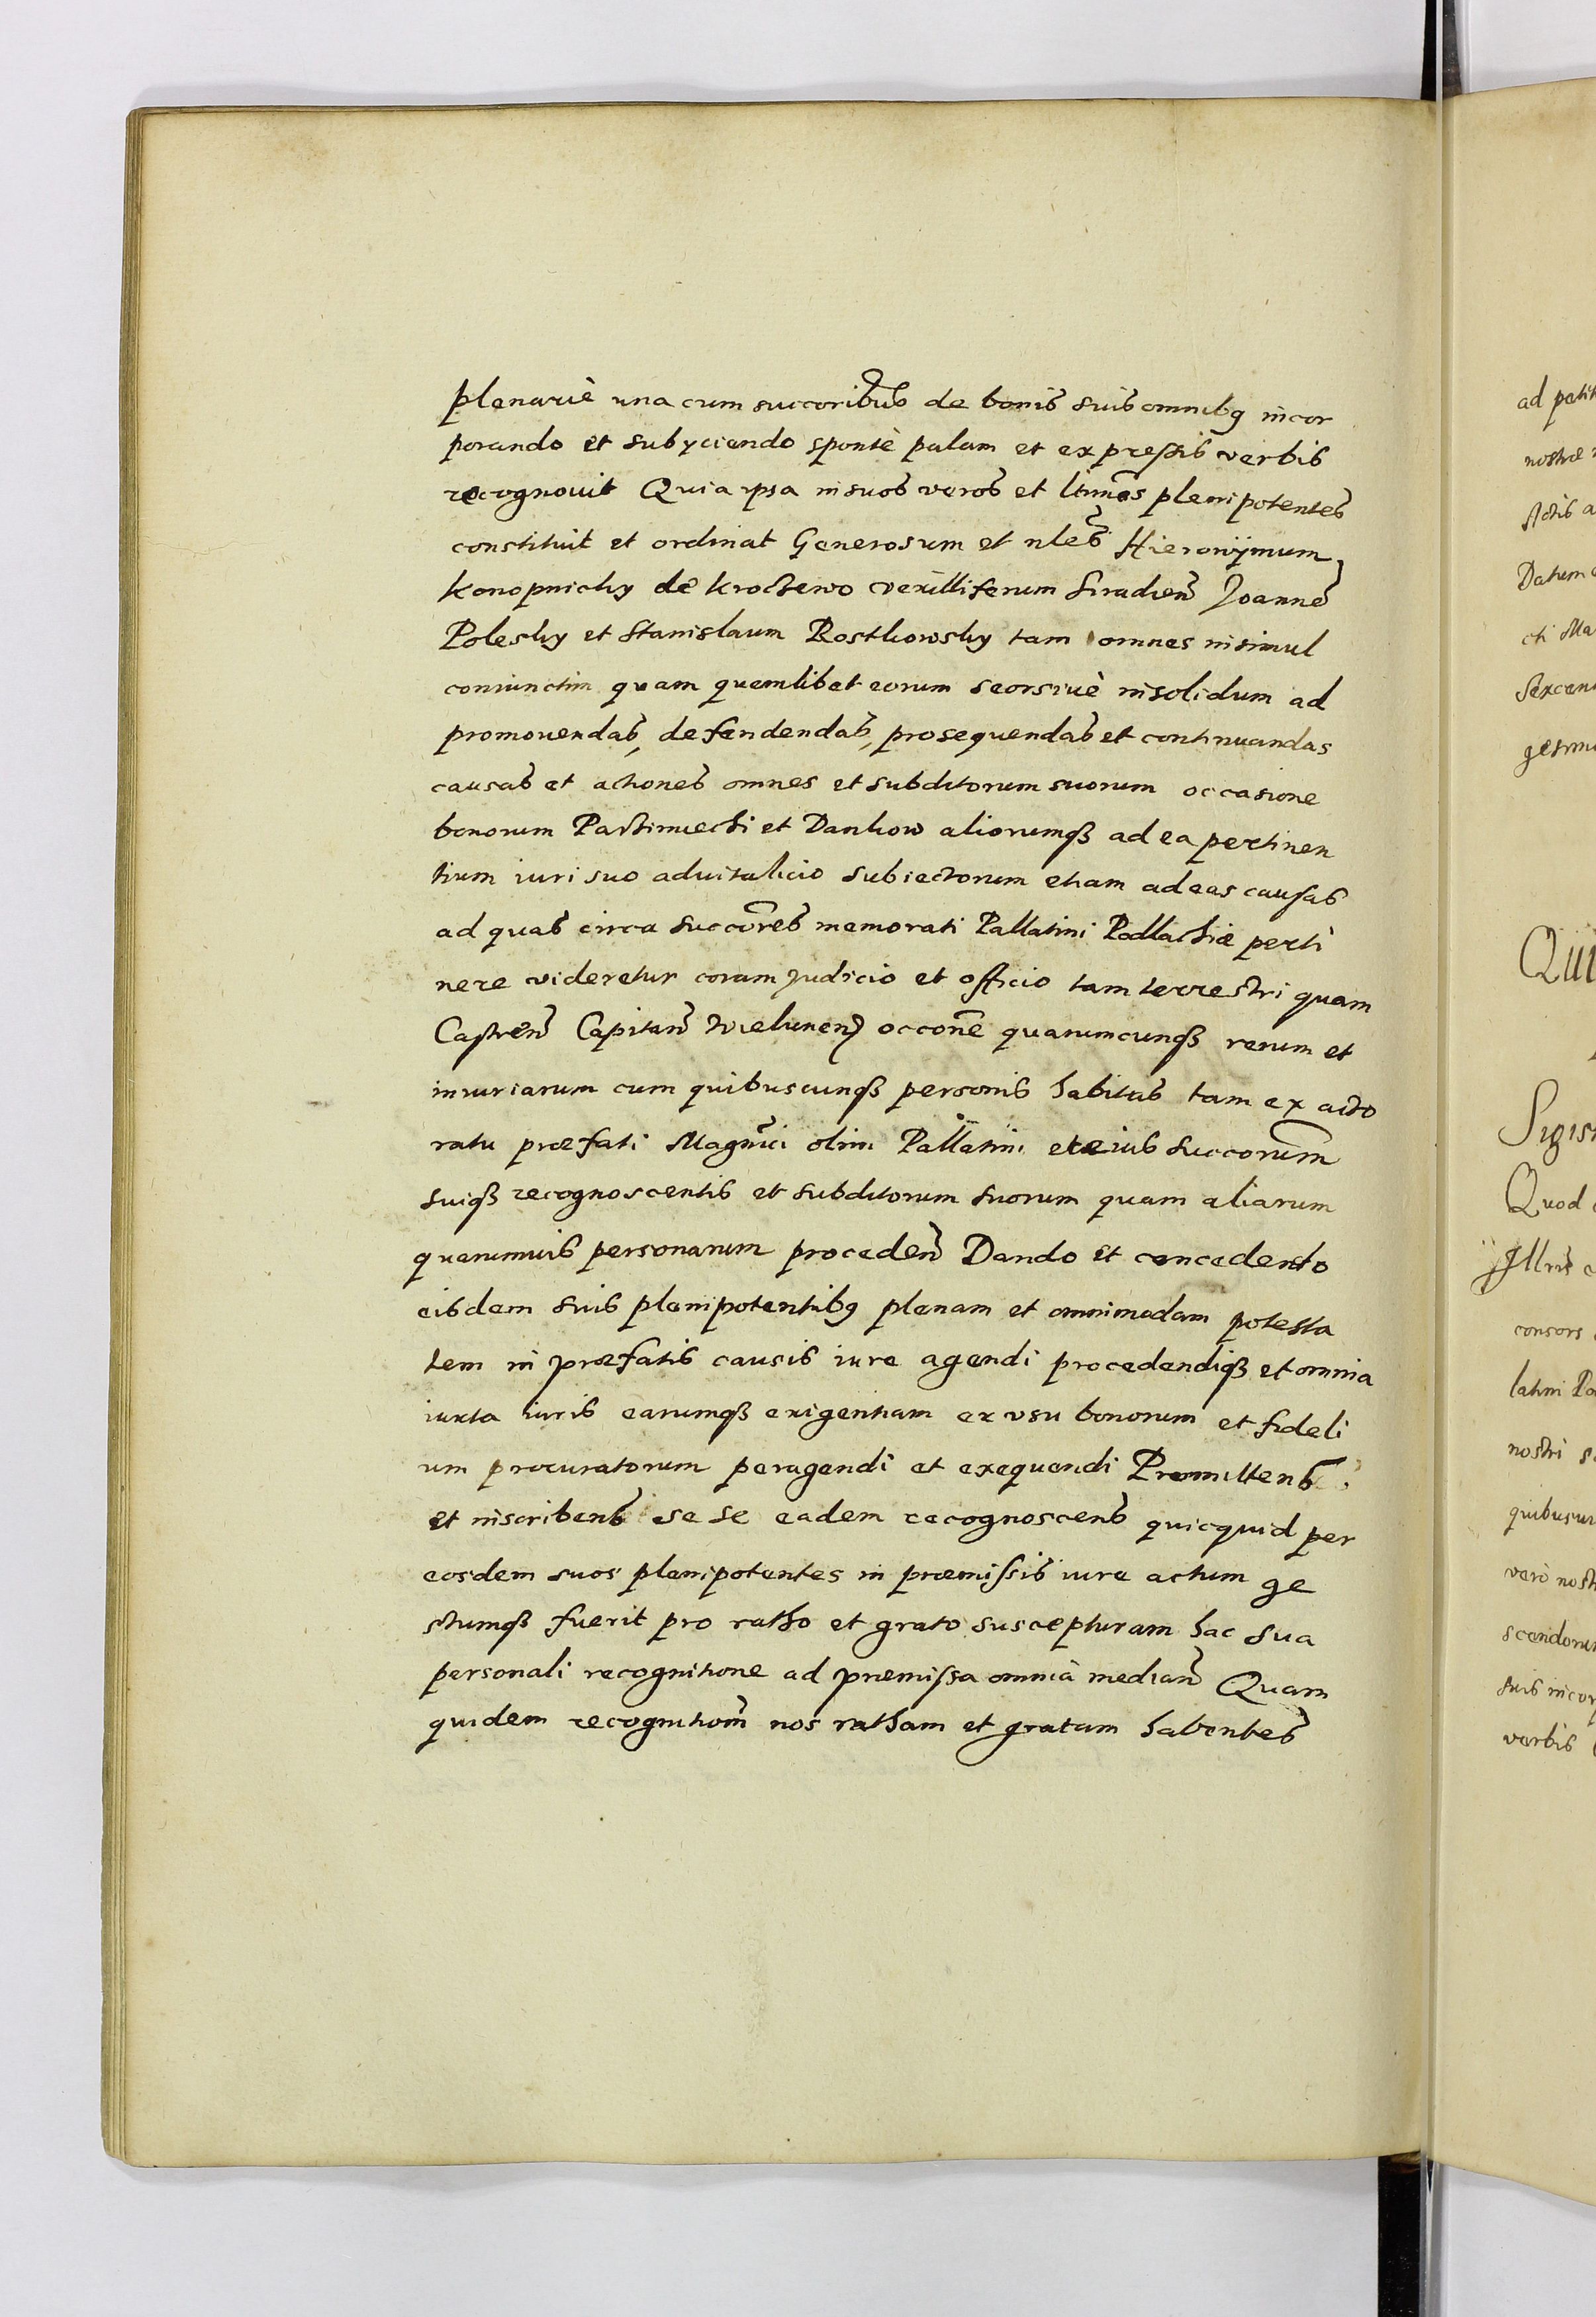 plenariè una cum succoribus de bonis suis omnibq incor
porando et subyciendo spontè palam et expressis verbis
recognouit Quia ipsa in suos veros et ltimos plenipotentes
constituit et ordinat Generosum et nles Hieronÿmum
Konopnichy de Krochewo vexilliferum Siradien Joanne
Poleshy et Stanislaum Rosthowshy tam omnes in simul
coniunctim quam quemlibet eorum seorsiuè in solidum ad
promouendas, defendendas, prosequendas et continuandas
causas et actiones omnes et subditorum suorum occasione
bonorum Parthimiechi et Danhow aliorumqß ad ea pertinen
tium iuri suo aduitalicio subiectorum etiam ad eas causas
ad quas circa succores memorati Pallatini Podlachiæ perti
nere videretur coram Judicio et officio tam terrestri quam
Castren Capitan Wielunen occone quarumcunqß rerum et
iniuriarum cum quibuscunqß personis habitis tam ex acto
ratu præfati Magnici olim Pallatini et eius succorum
suiqß recognoscentis et subditorum suorum quam aliarum
quarumuis personarum proceden Dando et concedento
eisdem suis plenipotentibq plenam et omnimodam potesta
tem in præfatis causis iure agendi procedendiqß et omnia
iuxta iuris earumqß exigentiam ex vsu bonorum et fideli
um procuratorum peragendi et exequendi Promittens
et inscribens se se eadem recognoscens quicquid per
eosdem suos plenipotentes in præmissis iure actum ge
stumqß fuerit pro ratho et grato suscepturam hac sua
personali recognitione ad præmissa omnia median Quam
quidem recognitiom nos ratham et gratam habentes
ad petit
nostræ
Actis a
Datum
cti Ma
Sexcen
gesim
QUI
Sigis
Quod
Illris
consors
latini Po
nostri s
quibuscu
verò nost
scendoru
suis incor
verbis